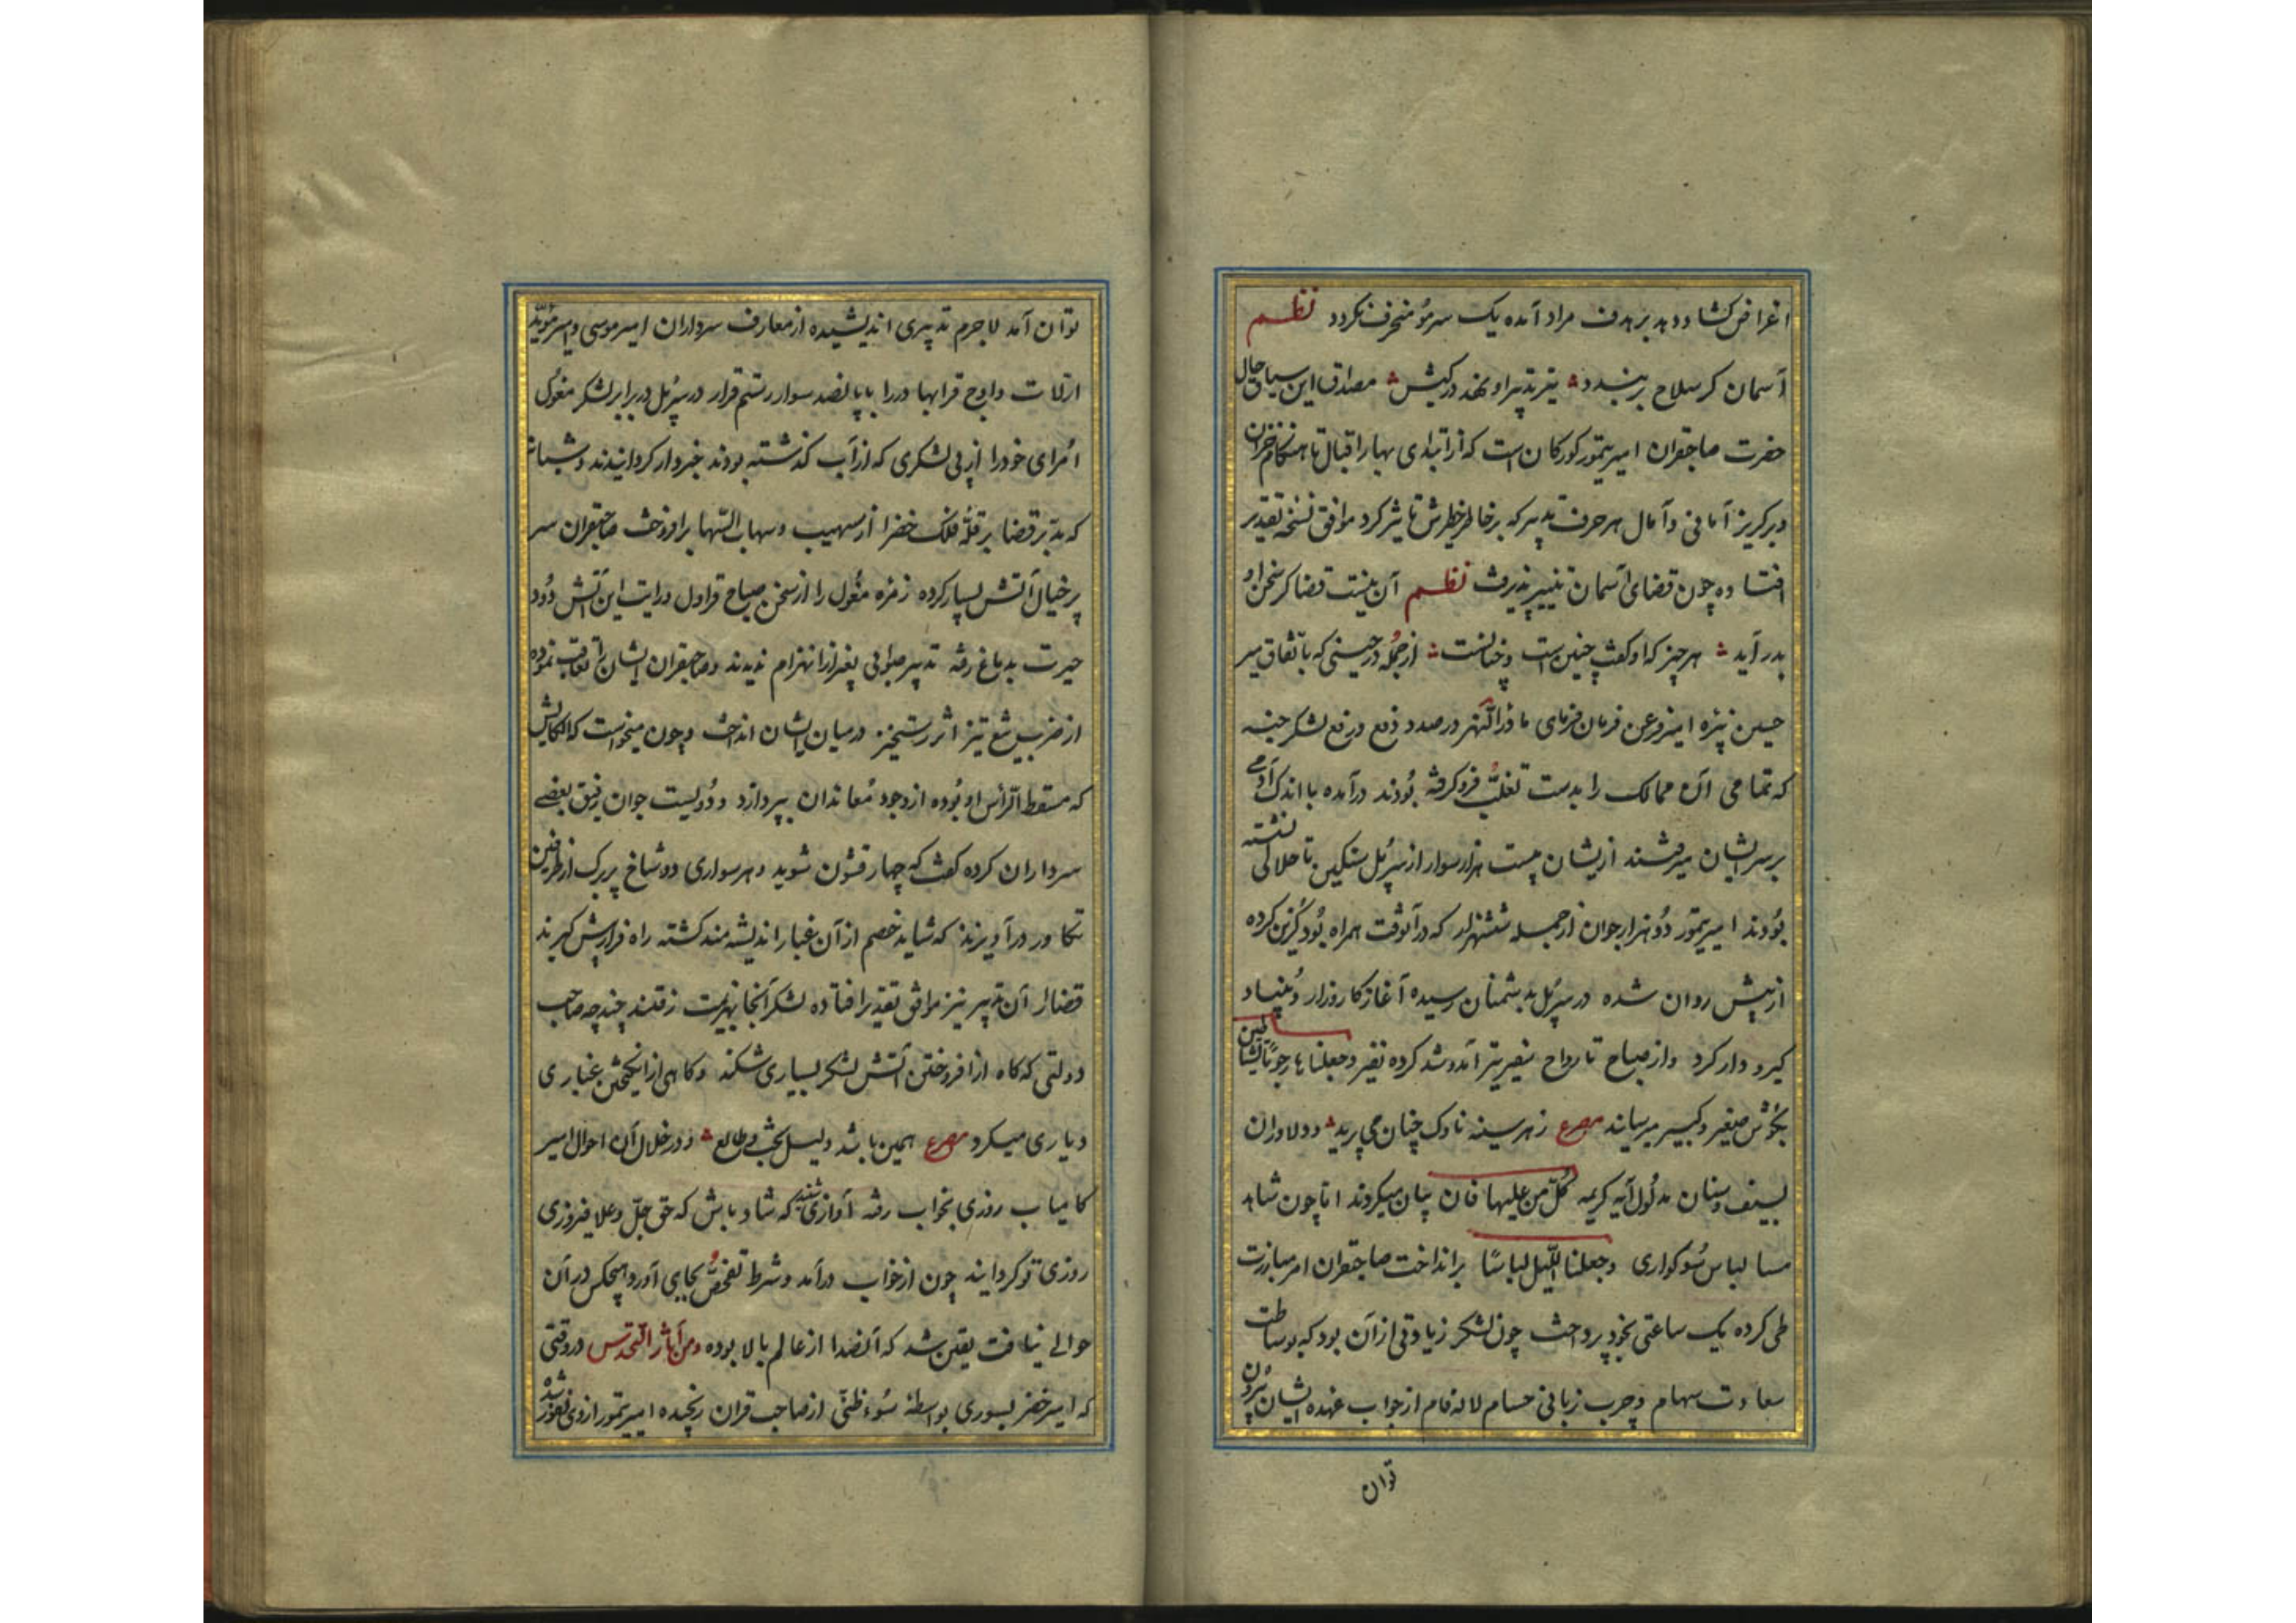 اغراض کشاد دهد بر هدف مراد آمده یک سر مو منحرف نکردد نظم
آسمان کر سلاح بربندد تیر تدبیر او نهد در کیش مصداق این سیاق حال
حضرت صاحبقران امیر تیمور کورکان است که از ابتدای بهار اقبال تا هنکام خزان
و برکریز آمانی و آمال هر حرف تدبیر که بر خاطر خطیرش تاثیر کرد موافق نسخه تقدیر
افتاده چون قضای آسمان تغییر نپذیرفت نظم آن نیست قضا کر سخن او
بدر آید هر چیز که او کفت چنین است و چنانست از جمله در حینی که باتفاق میر
حسین نبیره امیر قزغن فرمان فرمای ماوراالنهر در صدد دفع و رفع لشکر جته
که تمامی آن ممالک را بدست تغلب فرو کرفته بودند در آمده با اندک آدمی
بر سر ایشان میرفتند از یشان بیست هزار سوار از سر پل سنکین تا حلالی نشسته
بودند امیر تیمور دو هزار جوان از جمله ششهزار که در آنوقت همراه بود کزین کرده
از پیش روان شده در سر پل بدشمنان رسیده آغاز کارزار و بنیاد
کیر و دار کرد و از صباح تا رواح سفیر تیر آمد و شد کرده نفیر وجعلناها رجوما للشیاطین
بکوش صغیر و کبیر میرسانید مصرع ز هر سینه ناوک چنان می پرید و دلاوران
بسیف و سنان مدلول آیه کریمه کل من علیها فان بیان میکردند اما چون شاهد
مسا لباس سوکواری وجعلنا اللیل لباسا برانداخت صاحبقران امر مبارزت
طی کرده یک ساعتی بخود پرداخت چون لشکر زیادتی از آن بود که بوساطت
سعادت سهام و چرب زبانی حسام لاله فام از جواب عهده ایشان بیرون
توان
توان آمد لاجرم تدبیری اندیشیده از معارف سرداران امیر موسی و امیر مؤید
ارلات و اوچ قرا بهادر را با پانصد سوار رستم قرار در سر پل در برابر لشکر مغول
امرای خود را از پی لشکری که از آب کذشته بودند خبردار کردانیدند و شبانه
که مدبر قضا بر قله فلک خضرا از سهیب و سهاب التهاب برافروخت صاحبقران سر
پر خیال آتش بسیار کرده زمره مغول را از سخن صباح قراول و رایت این آتش دود
حیرت بدماغ رفته تدبیر صوابی بغیر از انهزام ندیدند و صاحبقران ایشان را تعاقب نموده
از ضرب تیغ تیز اثر رستخیز در میان ایشان انداخت و چون میخواست که الکای کش
که مسقط الراس او بوده از وجود معاندان بپردازد و دویست جوان رفیق بعضی
سرداران کرده کفت که چهار قشون شوید و هر سواری دو شاخ بزرک از طرفین
تکاور درآویزند که شاید خصم از آن غبار اندیشه مند کشته راه فرار پیش کیرند
قضا را آن تدبیر نیز موافق تقدیر افتاده لشکر آنجا بهزیمت رفتند چنانچه صاحب
دولتی که کاه از افروختن آتش لشکر بسیاری شکند و کاهی از انکیختن غباری
دیاری میکرد مصرع همین باشد دلیل بخت و طالع و در خلال آن احوال امیر
کامیاب روزی بخواب رفته آوازی شنید که شاد باش که حق جل و علا فیروزی
روزی تو کردانید چون از خواب درآمد و شرط تفحص بجای آورد هیچکس در آن
حوالی نیافت یقین شد که آنصدا از عالم بالا بوده و من آثار القدس در وقتی
که امیر خضر یسوری بواسطه سوء ظنی از صاحب قران رنجیده امیر تیمور از وی نفور شده